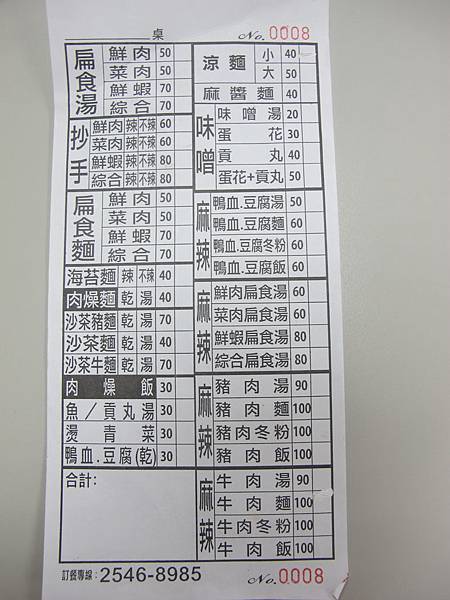 桌 No. 0008
扁食湯
鮮肉 50
菜肉 50
鮮蝦 70
綜合 70
抄手
鮮肉 辣 不辣 60
菜肉 辣 不辣 60
鮮蝦 辣 不辣 80
綜合 辣 不辣 80
扁食麵
鮮肉 50
菜肉 50
鮮蝦 70
綜合 70
海苔麵 辣 不辣 40
肉燥麵 乾 湯 40
沙茶豬麵 乾 湯 70
沙茶麵 乾 湯 40
沙茶牛麵 乾 湯 70
肉燥飯 30
魚/貢丸湯 30
燙青菜 30
鴨血.豆腐(乾) 30
合計:
涼麵
小 40
大 50
麻醬麵 40
味噌
味噌湯 20
蛋花 30
貢丸 40
蛋花+貢丸 50
麻辣
鴨血.豆腐湯 50
鴨血.豆腐麵 60
鴨血.豆腐冬粉 60
鴨血.豆腐飯 60
麻辣
鮮肉扁食湯 60
菜肉扁食湯 60
鮮蝦扁食湯 80
綜合扁食湯 80
麻辣
豬肉湯 90
豬肉麵 100
豬肉冬粉 100
豬肉飯 100
麻辣
牛肉湯 90
牛肉麵 100
牛肉冬粉 100
牛肉飯 100
訂餐專線:2546-8985 No. 0008